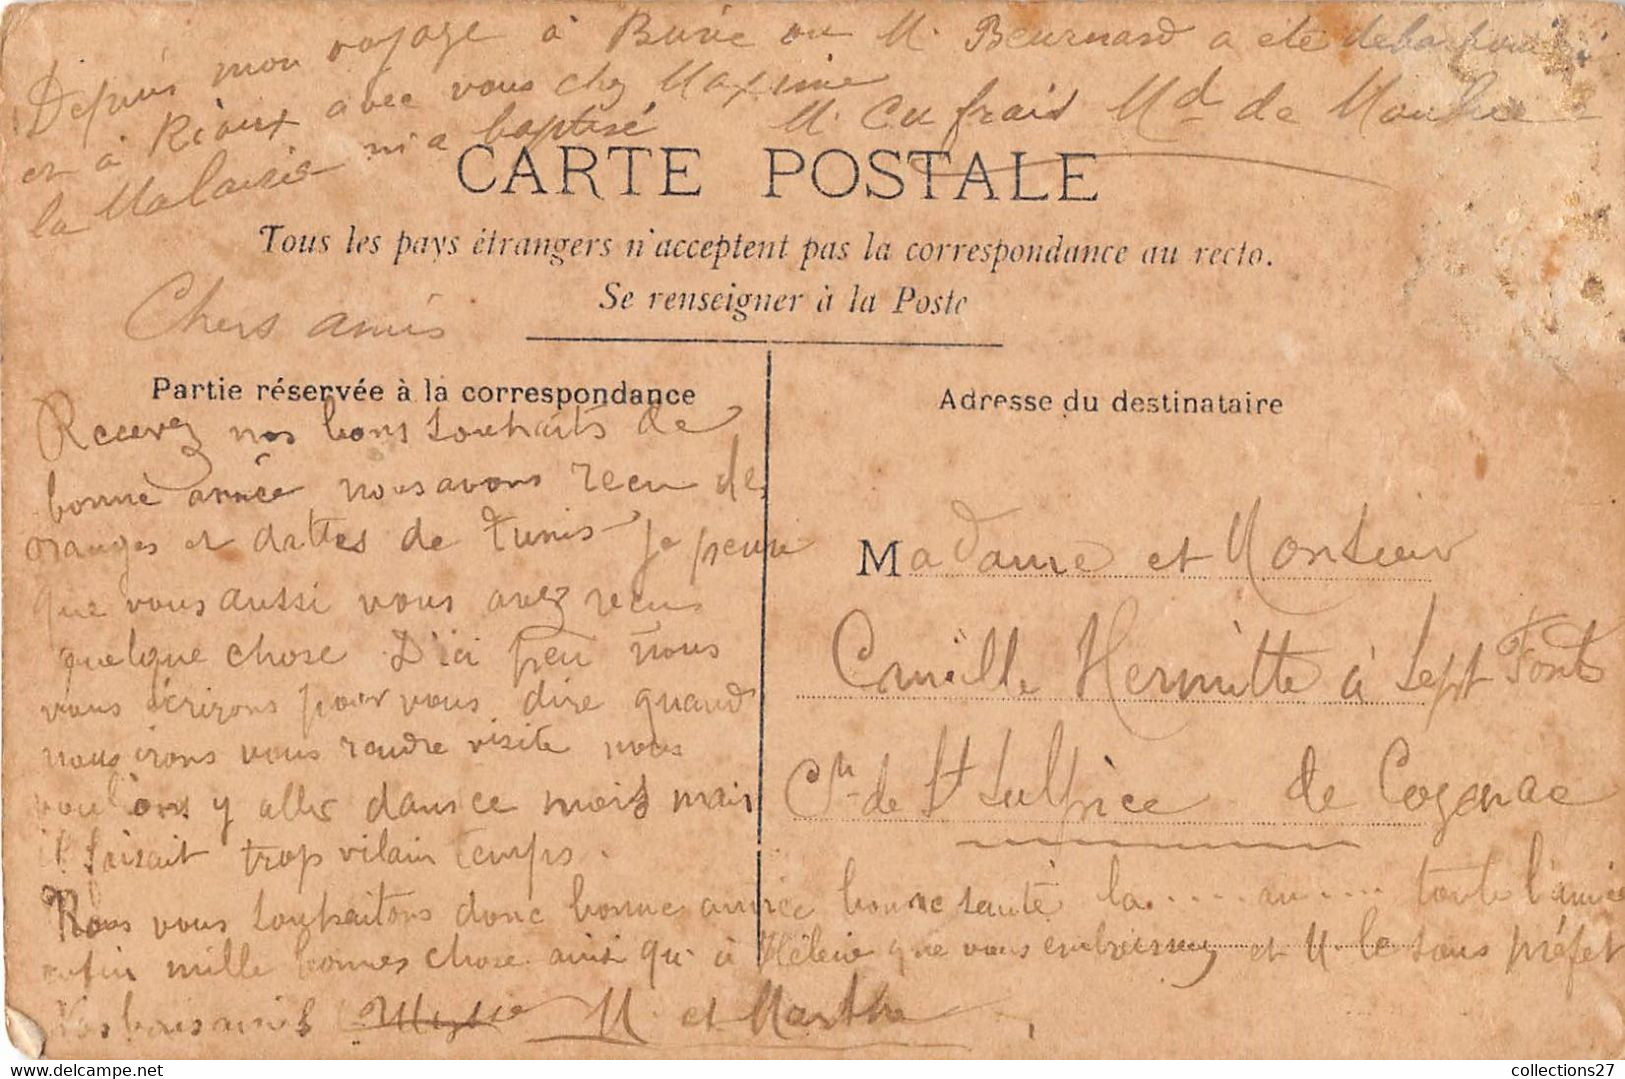 Depuis mon voyage à Burie ou M. Beurnard a ete
et à Rioux avec vous chez Maxime
la Malaisie m'a baptisé M. Cu frais Md de
CARTE POSTALE
Tous les pays étrangers n'acceptent pas la correspondance au recto.
Se renseigner à la Poste
Chers amis
Partie réservée à la correspondance
Recevez nos bons souhaits de
bonne année nous avons recu des
oranges et dattes de Tunis je pense
que vous aussi vous avez recus
quelque chose. D'ici peu nous
vous écrirons pour vous dire quand
nous irons vous rendre visite nous
voulions y aller dans ce mois mais
il faisait trop vilain temps.
Nous vous souhaitons donc bonne année bonne santé la..... au.... toute l'année
enfin mille bonnes chose ainsi qu'à Hélène que vous embrasserez et M. le sous préfet
Vos bons amis M. et Marthe
Adresse du destinataire
Madame et Monsieur
Camille Hermitte à Sept Fonts
Cne de St Sulpice de Cognac
collections27